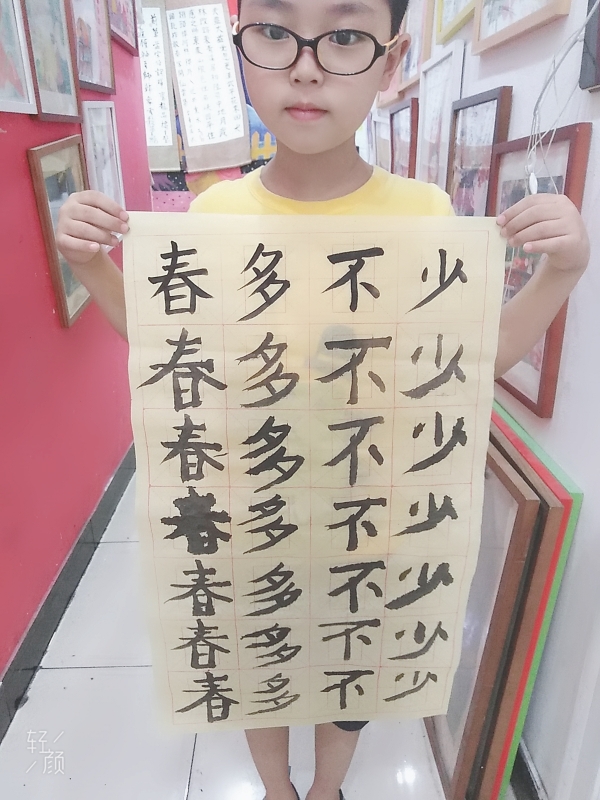 春多不少
春多不少
春多不少
春多不少
春多不少
春多不少
春多不少
轻颜